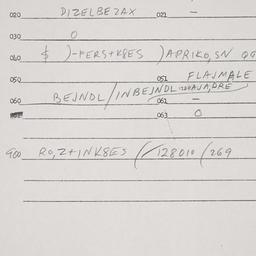 020 DIZELBEZAX 021 –
030 0
040 $ )-FERS+K8ES )APRIKO,SN
050 051 FLAJMALE
060 BEJNDL/INBEJNDL 061 –
063 0
900 RO,Z+INK8ES (/128010/269